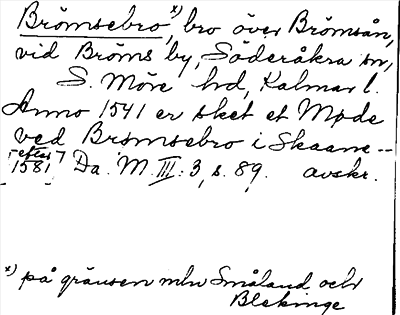 Brömsebro x), bro över Brömsån,
vid Bröms by, Söderåkra sn,
S. Möre hd, Kalmar l.
Anno 1541 er sket et Møde
ved Brømsebro i Skaane --
[efter 1581] Da. M. III: 3, s. 89. avskr.
x) på gränsen mln Småland och
Blekinge